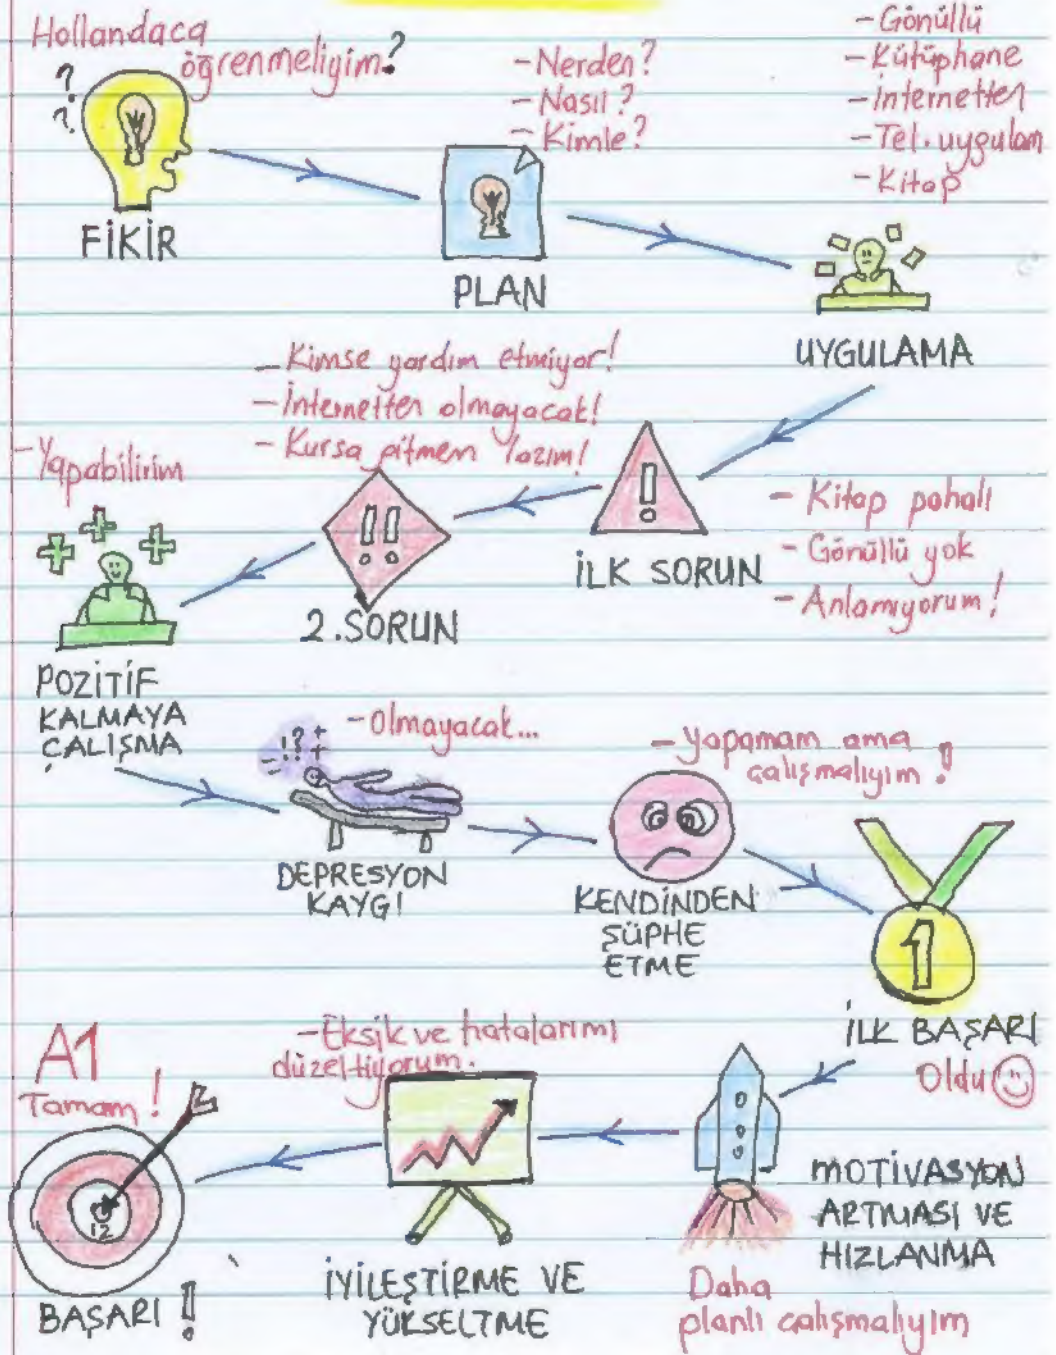 Hollandaca
öğrenmeliyim?
FİKİR
- Nerden?
- Nasıl?
- Kimle?
PLAN
- Gönüllü
- Kütüphane
- İnternetten
- Tel. uygulam
- Kitap
UYGULAMA
- Kitap pahalı
- Gönüllü yok
- Anlamıyorum!
İLK SORUN
- Kimse yardım etmiyor!
- İnternetten olmayacak!
- Kursa gitmem lazım!
2. SORUN
- Yapabilirim
POZİTİF
KALMAYA
ÇALIŞMA
- Olmayacak...
!?
DEPRESYON
KAYGI
- Yapamam ama
çalışmalıyım!
KENDİNDEN
ŞÜPHE
ETME
1
İLK BAŞARI
Oldu
MOTİVASYON
ARTMASI VE
HIZLANMA
Daha
planlı calışmalıyım
- Eksik ve hatalarımı
düzeltiyorum.
İYİLEŞTİRME VE
YÜKSELTME
A1
Tamam!
12
BAŞARI!